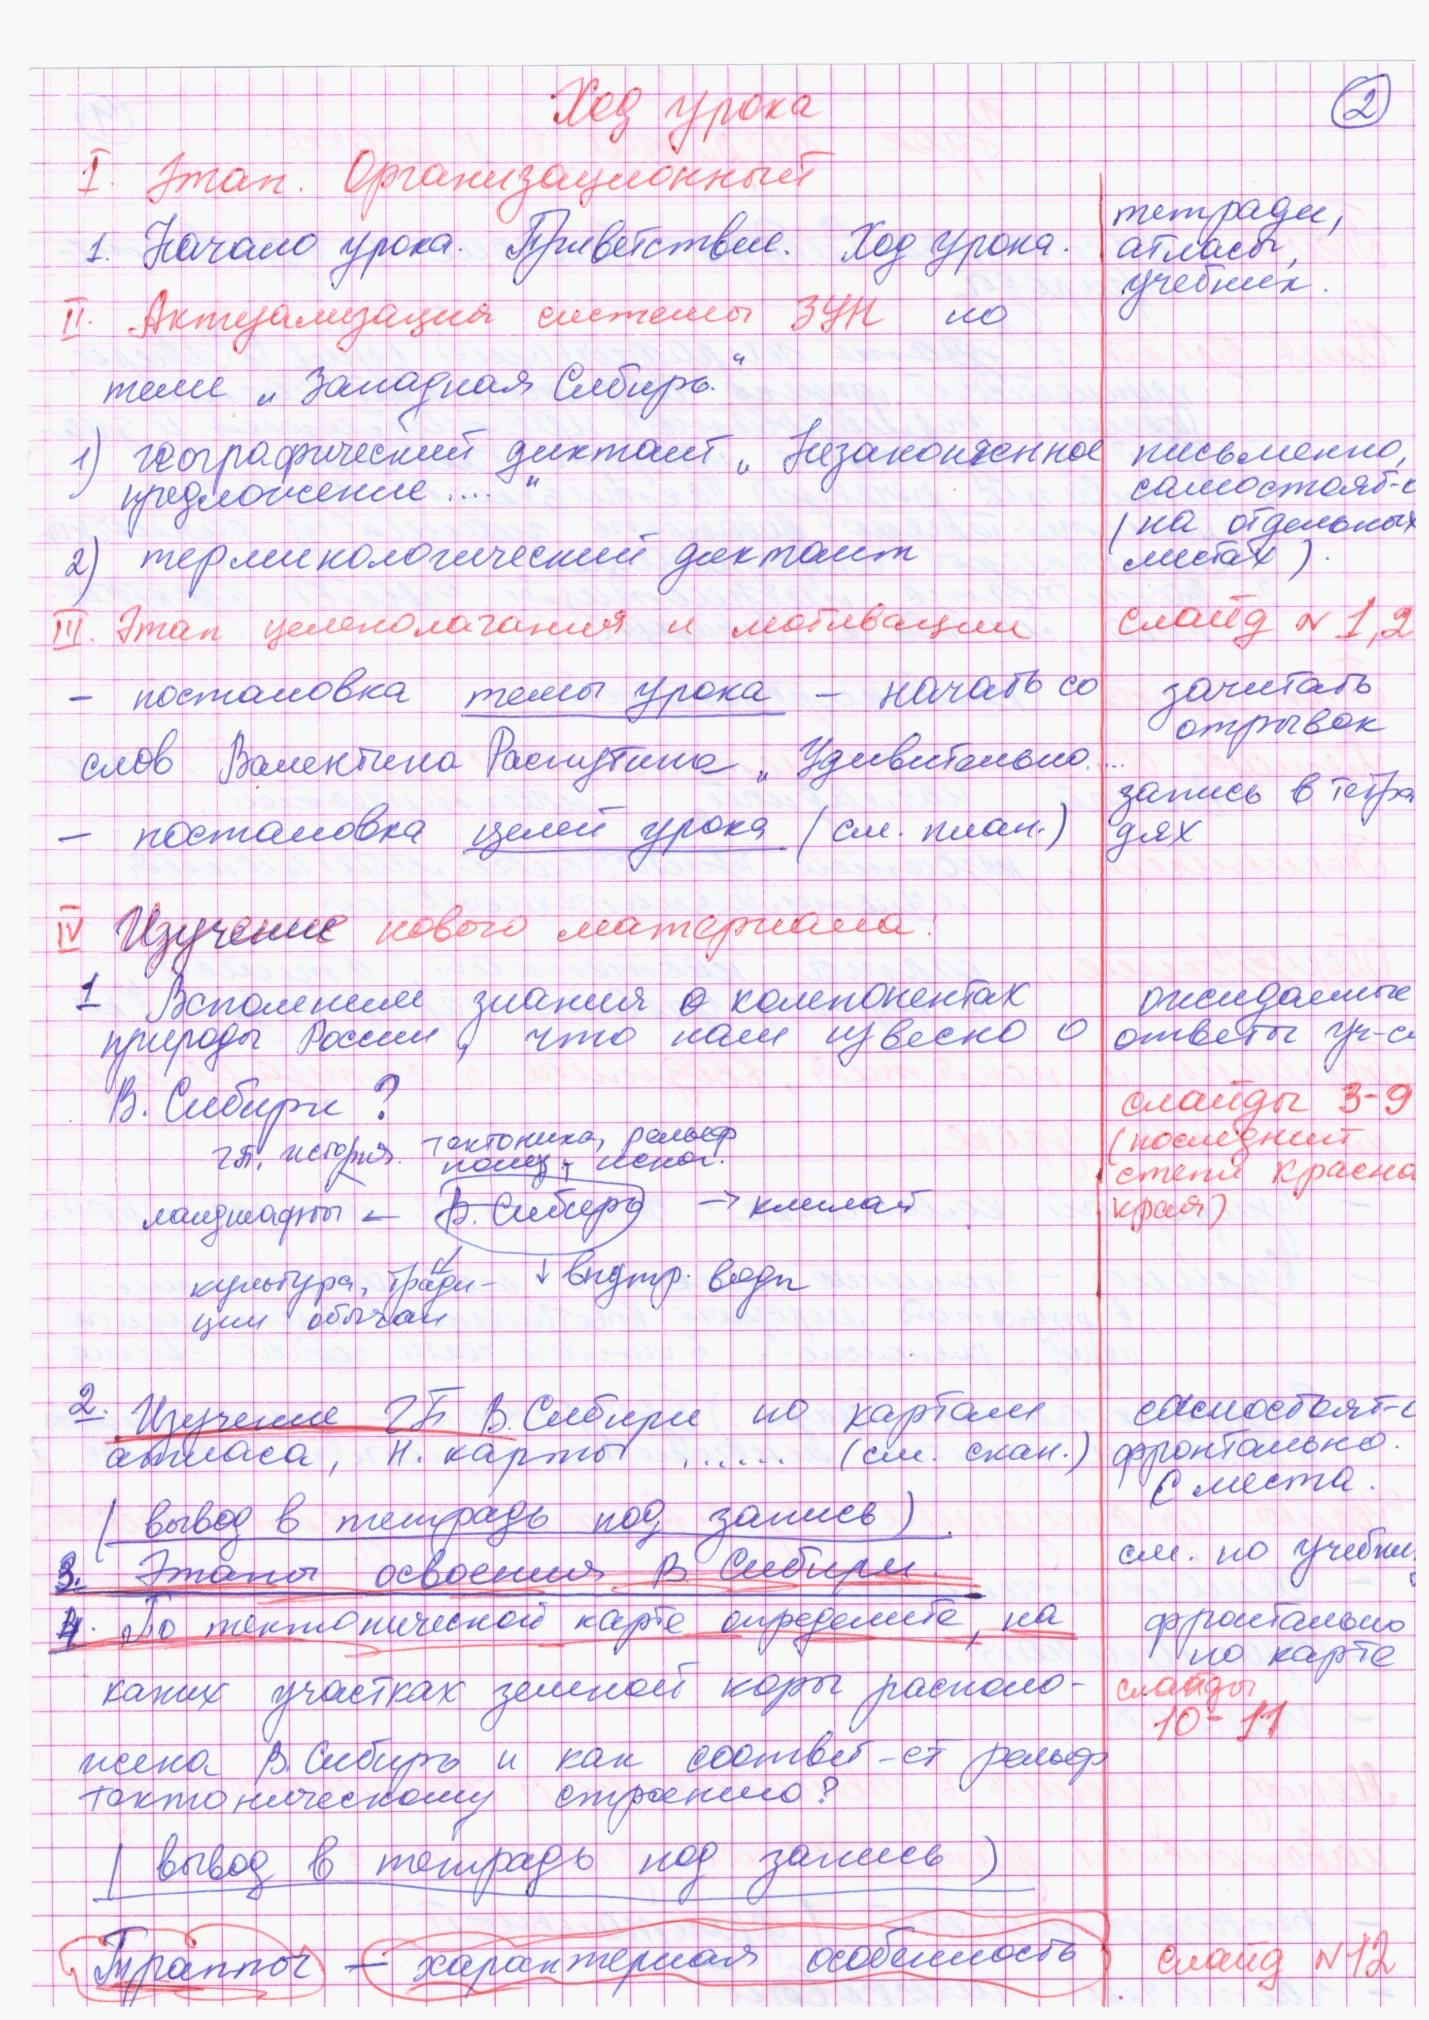 Ход урока
2
I. Этап. Организационный
1. Начало урока. Приветствие. Ход урока.
тетради,
атласы,
учебник.
II. Актуализация системы ЗУН по
теме „Западная Сибирь.“
1) географический диктант „Незаконченное
предложение ....“
письменно,
самостоят-
(на отдельных
листах).
2) терминологический диктант
III. Этап целеполагания и мотивации
слайд №1,2
– постановка темы урока – начать со
слов Валентина Распутина „Удивительно....
зачитать
отрывок
– постановка целей урока (см. план.)
запись в тетра
дях
IV Изучение нового материала.
1 Вспомним знания о компонентах
природы России, что нам извесно о
В. Сибири?
ожидаемые
ответы уч-
слайды 3-9
(последний
степи Красно
края)
ГП, история. тектоника, рельеф
полез. ископ.
ландшафты ← В. Сибирь → климат
культура, тради-
ции обычаи
↓ внутр. воды
2. Изучение ГП В. Сибири по картам
атласа, н. карты ...... (см. скан.)
самостоят-
фронтально.
с места.
(вывод в тетрадь под запись).
3. Этапы освоения В Сибири.
см. по учебни
4. По тектонической карте определите, на
каких участках земной коры располо-
жена В. Сибирь и как соответ-ет рельеф
тектоническому строению?
фронтально
по карте
слайды
10-11
(вывод в тетрадь под запись)
Траппы – характерная особенность
слайд №12